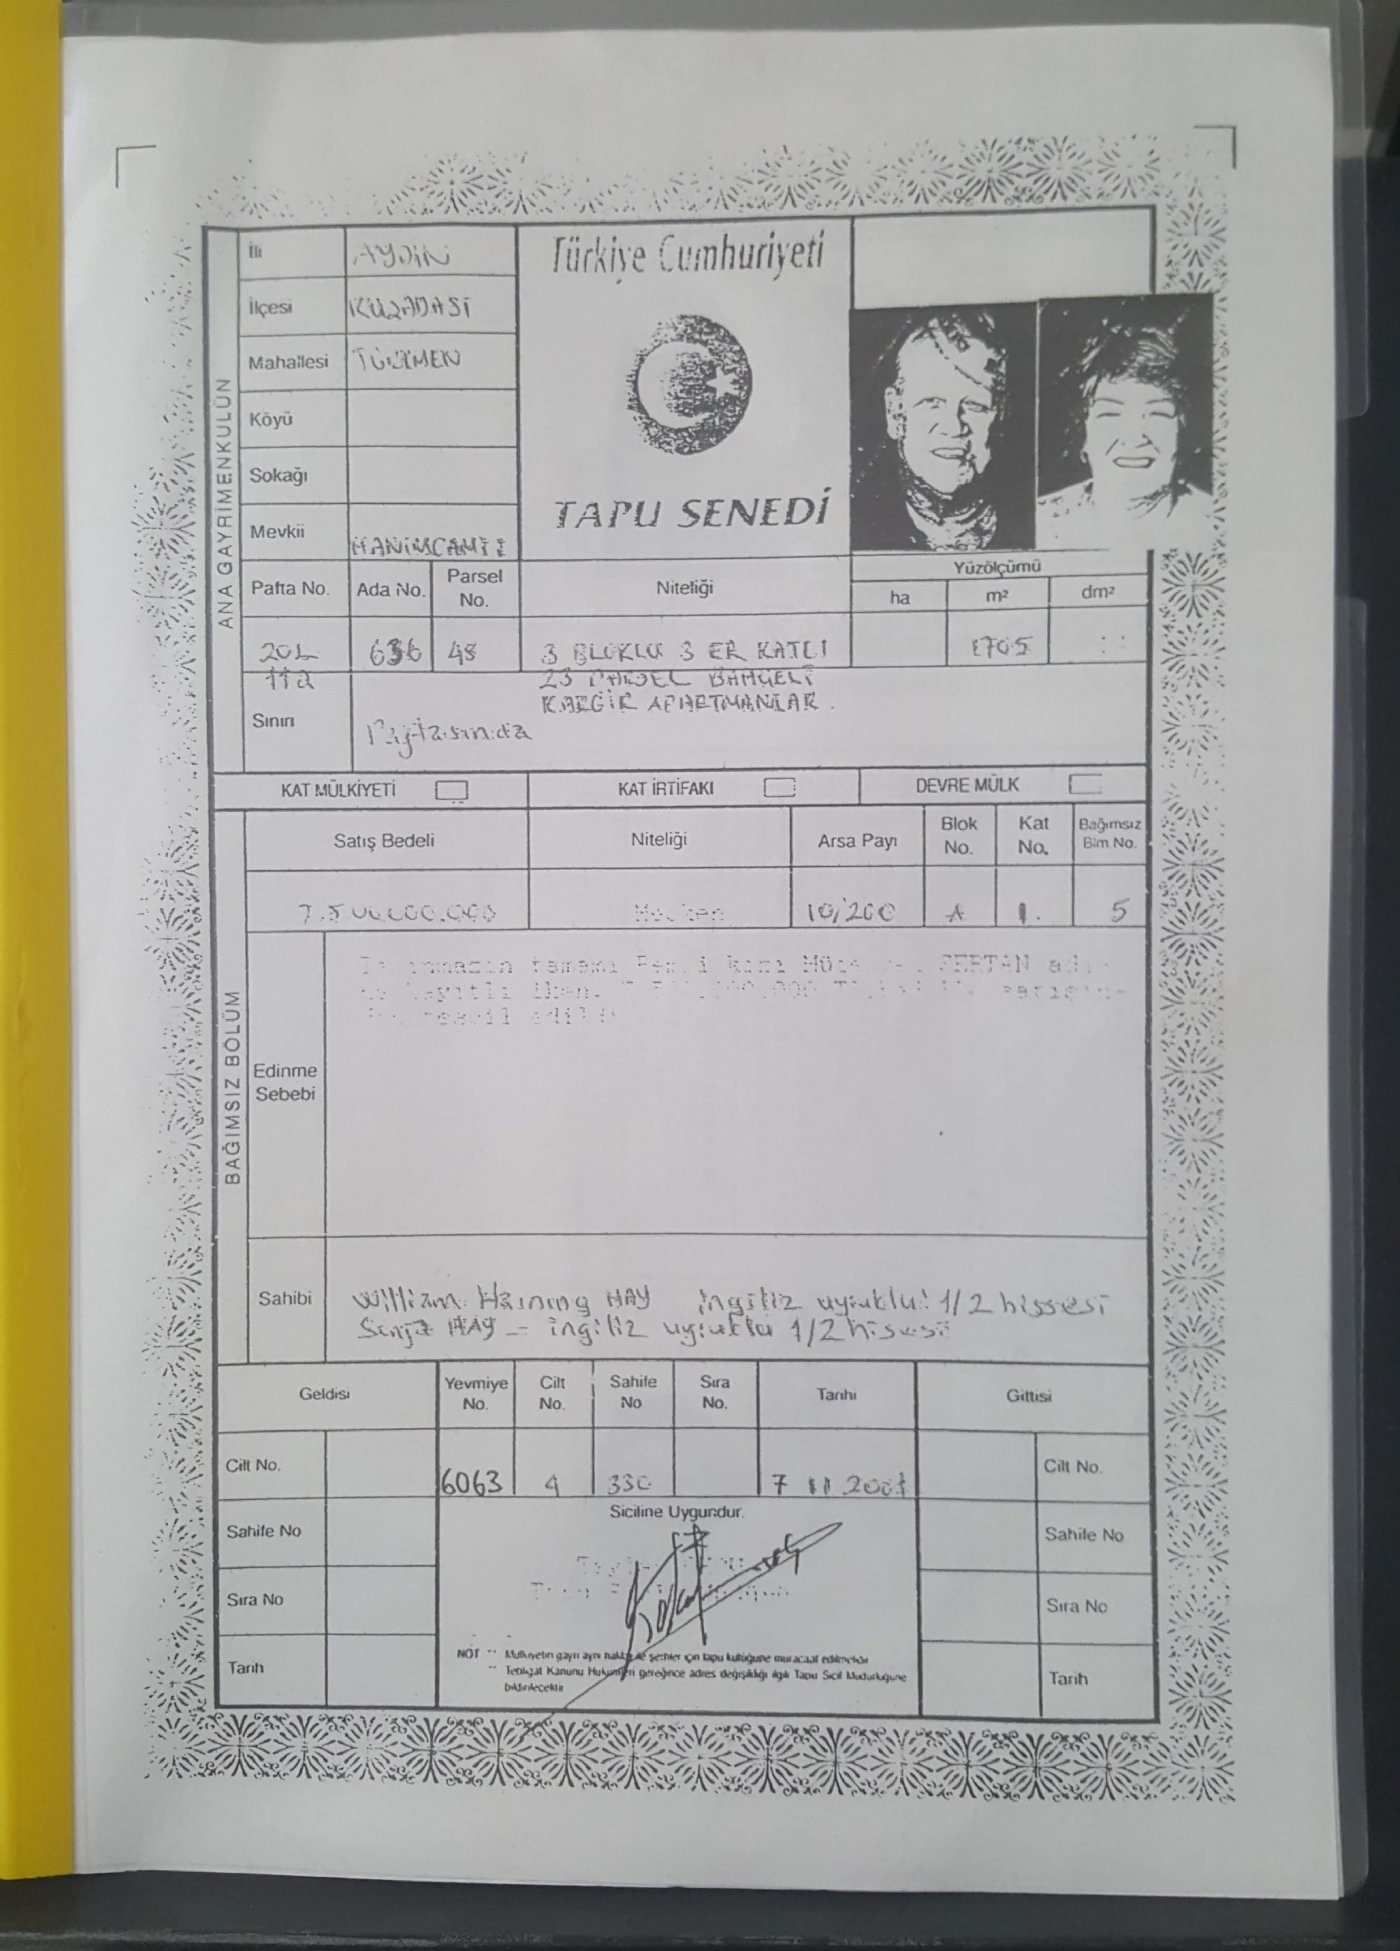 ANA GAYRİMENKULÜN
İli AYDIN
İlçesi KUŞADASI
Mahallesi TÜRKMEN
Köyü
Sokağı
Mevkii HANIMCAMİİ
Türkiye Cumhuriyeti
TAPU SENEDİ
Pafta No. Ada No. Parsel No. Niteliği Yüzölçümü
ha m² dm²
636 48 3 BLOKLU 3 ER KATLI 1705
11a 23 PARSEL BAHÇELİ
KARGİR APARTMANLAR.
Sınırı Paftasında
KAT MÜLKİYETİ KAT İRTİFAKI DEVRE MÜLK
BAĞIMSIZ BÖLÜM
Satış Bedeli Niteliği Arsa Payı Blok No. Kat No. Bağımsız Blm No.
7.500.000.000 Mesken 10/200 A 1. 5
Edinme Sebebi
tamamı kızı
tescil edildi
Sahibi William Haining HAY ingiliz uyruklu: 1/2 hissesi
HAY - ingiliz uyruklu 1/2 hissesi
Geldisi Yevmiye No. Cilt No. Sahife No Sıra No. Tarihi Gittisi
6063 4 330 7 11 2001
Cilt No. Cilt No.
Siciline Uygundur.
Sahife No Sahife No
Sıra No Sıra No
Tarih Tarih
NOT Mülkiyetin gayri ayni haklar ile şerhler için tapu kütüğüne müracaat edilmelidir
Tebligat Kanunu Hükümleri gereğince adres değişikliği ilgili Tapu Sicil Müdürlüğüne
bildirilecektir